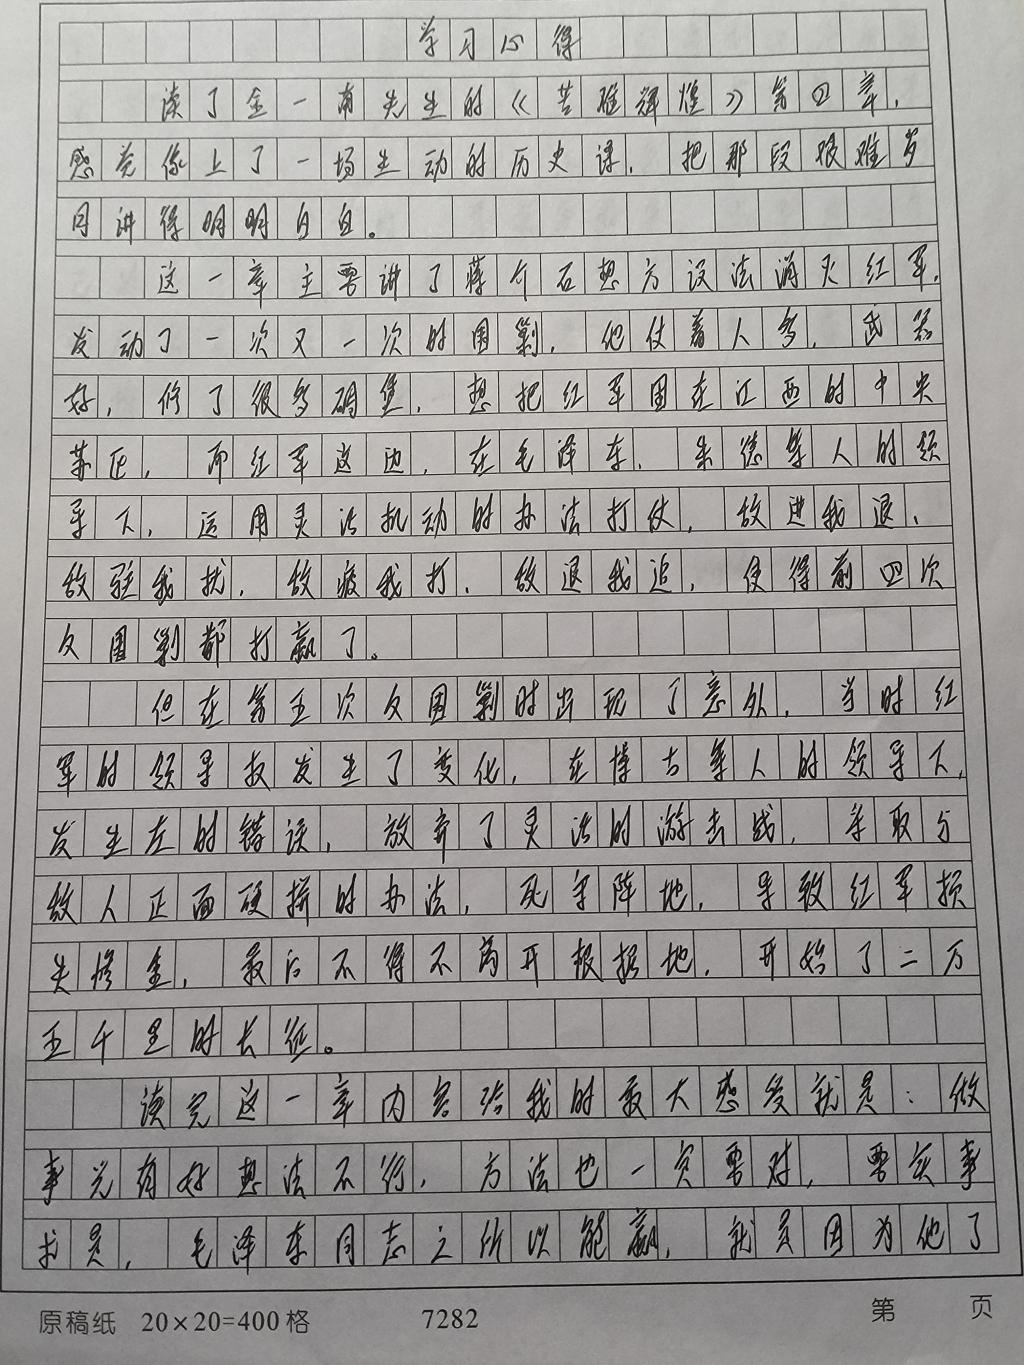 学习心得
读了金一南先生的《苦难辉煌》第四章，
感觉像上了一场生动的历史课，把那段艰难岁
月讲得明明白白。
这一章主要讲了蒋介石想方设法消灭红军，
发动了一次又一次的围剿，他仗着人多，武器
好，修了很多碉堡，想把红军困在江西的中央
苏区，而红军这边，在毛泽东、朱德等人的领
导下，运用灵活机动的办法打仗，敌进我退、
敌驻我扰，敌疲我打，敌退我追，使得前四次
反围剿都打赢了。
但在第五次反围剿时出现了意外，当时红
军的领导权发生了变化，在博古等人的领导下，
发生左的错误，放弃了灵活的游击战，采取与
敌人正面硬拼的办法，死守阵地，导致红军损
失惨重，最后不得不离开根据地，开始了二万
五千里的长征。
读完这一章内容给我的最大感受就是：做
事光有好想法不行，方法也一定要对，要实事
求是，毛泽东同志之所以能赢，就是因为他了
原稿纸 20×20=400格 7282 第 页